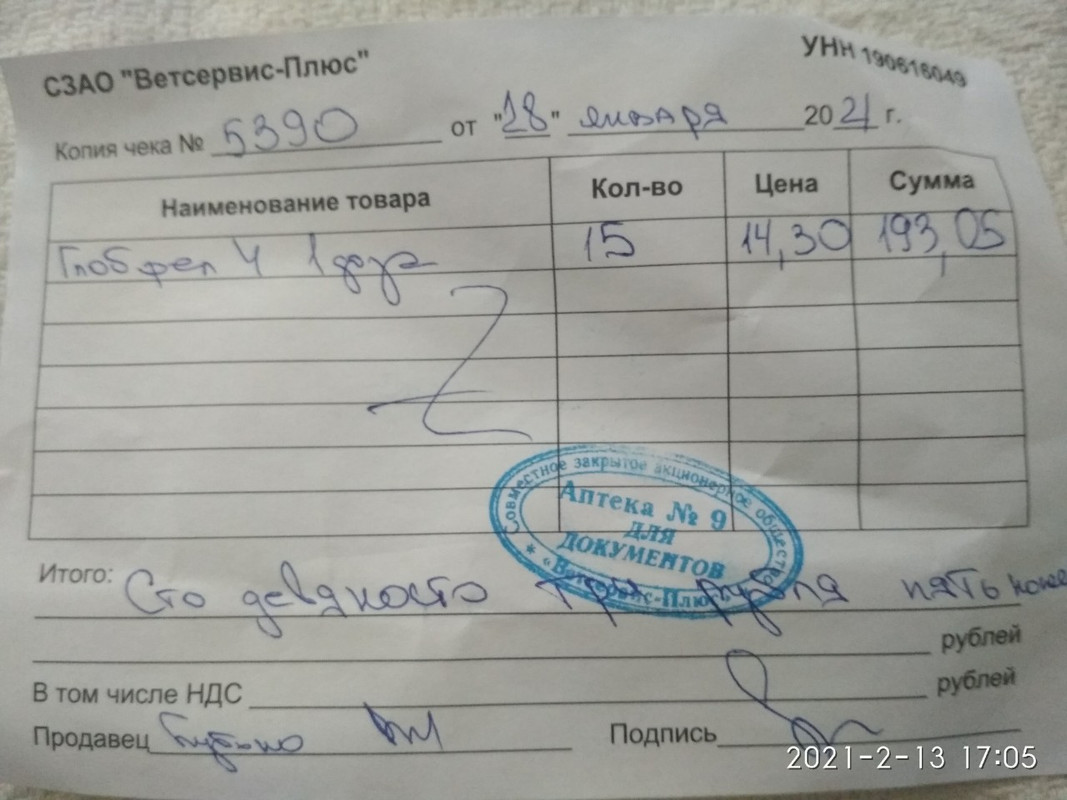 СЗАО "Ветсервис-Плюс"
УНН 190616049
Копия чека № 5390 от "28" января 2021 г.
Наименование товара Кол-во Цена Сумма
Глобфел 4 1 доза 15 14,30 193,05
Совместное закрытое акционерное общество
Аптека № 9
ДЛЯ
ДОКУМЕНТОВ
* «Ветсервис-Плюс»
Итого: Сто девяносто три рубля пять копе
рублей
В том числе НДС рублей
Продавец Подпись
2021-2-13 17:05